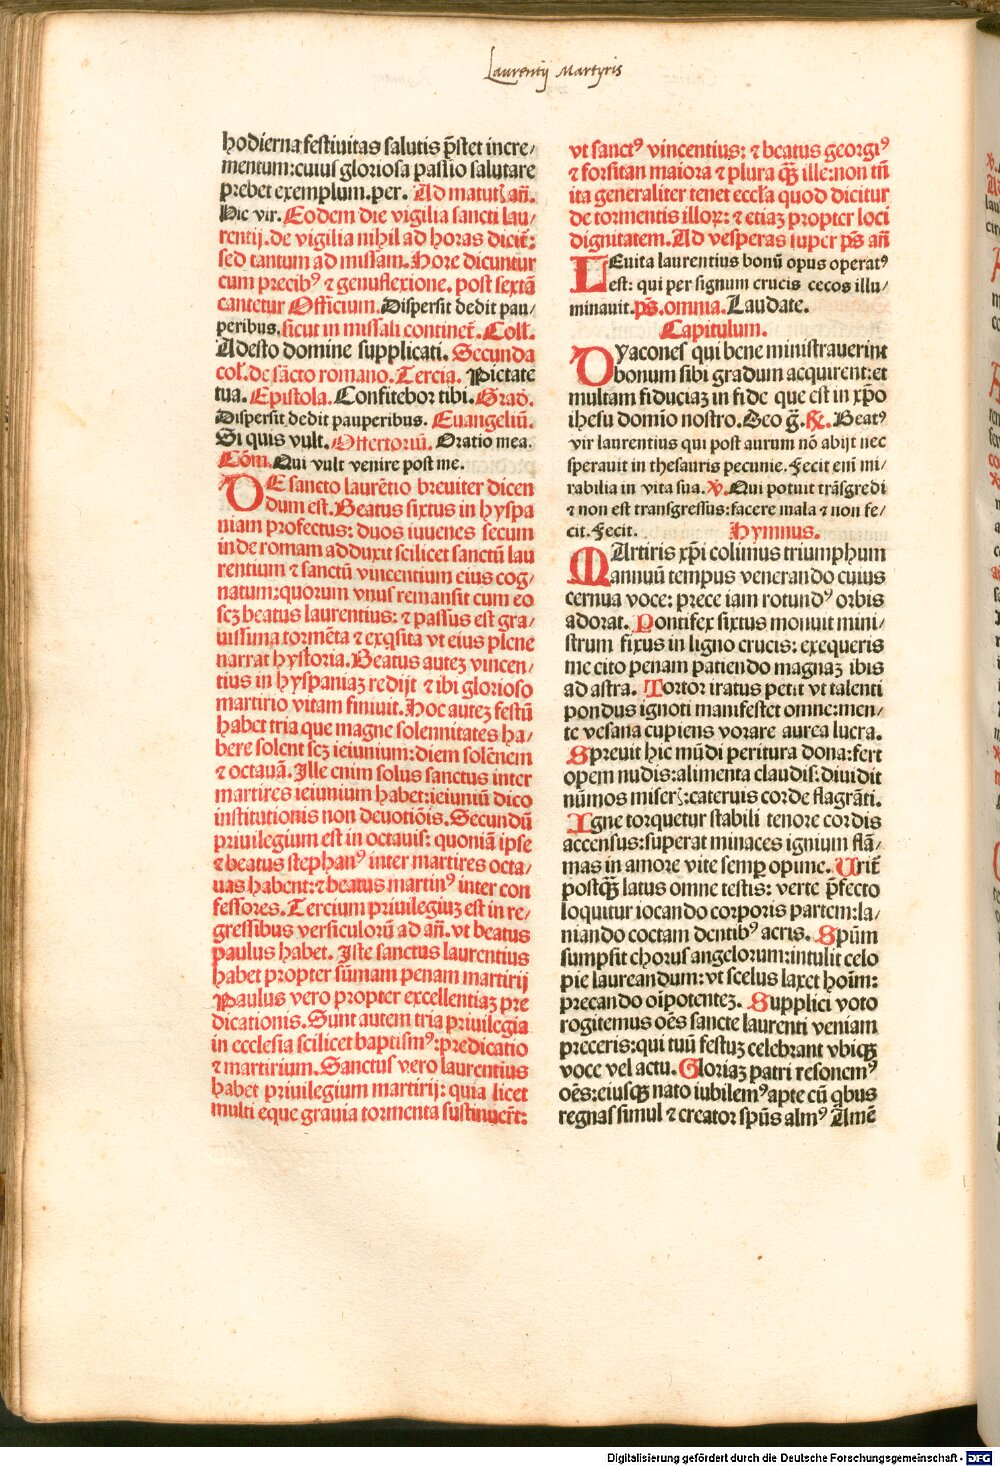 Laurentij Martyris
hodierna festiuitas salutis p̄stet incre/
mentum:cuius gloriosa passio salutare
prebet exemplum.per. Ad matutꝭ an̄.
Hic vir. Eodem die vigilia sancti lau/
rentij.de vigilia nihil ad horas dicit̄:
sed tantum ad missam.Hore dicuntur
cum precibꝰ ⁊ genuflexione. post sextā
cantetur Officium.Dispersit dedit pau/
peribus.sicut in missali continet̄. Coll.
Adesto domine supplicati. Secunda
col̄.de sācto romano. Tercia. Pietate
tua. Epistola. Confitebor tibi. Grad.
Dispersit dedit pauperibus. Euangeliū.
Si quis vult. Offertoriū. Oratio mea.
Cōm. Qui vult venire post me.
DE sancto laurētio breuiter dicen
dum est. Beatus sixtus in hyspa
niam profectus: duos iuuenes secum
inde romam adduxit scilicet sanctū lau
rentium ⁊ sanctū vincentium eius cog/
natum:quorum vnus remansit cum eo
scꝫ beatus laurentius: ⁊ passus est gra/
uissima tormēta ⁊ exq̄sita vt eius plene
narrat hystoria. Beatus auteꝫ vincen/
tius in hyspaniaꝫ redijt ⁊ ibi glorioso
martirio vitam finiuit. Hoc auteꝫ festū
habet tria que magne solennitates ha/
bere solent scꝫ ieiunium: diem solēnem
⁊ octauā. Ille enim solus sanctus inter
martires ieiunium habet:ieiuniū dico
institutionis non deuotiōis. Secundū
priuilegium est in octauis: quoniā ipse
⁊ beatus stephanꝰ inter martires octa/
uas habent:⁊ beatus martinꝰ inter con
fessores. Tercium priuilegiuꝫ est in re/
gressibus versiculorū ad an̄. vt beatus
paulus habet. Iste sanctus laurentius
habet propter sūmam penam martirij
Paulus vero propter excellentiaꝫ pre
dicationis. Sunt autem tria priuilegia
in ecclesia scilicet baptismꝰ:predicatio
⁊ martirium. Sanctus vero laurentius
habet priuilegium martirij: quia licet
multi eque grauia tormenta sustinuer̄t:
vt sanctꝰ vincentius: ⁊ beatus georgiꝰ
⁊ forsitan maiora ⁊ plura qꝫ̄ ille:non tn̄
ita generaliter tenet eccl̄a quod dicitur
de tormentis illoꝝ: ⁊ etiaꝫ propter loci
dignitatem. Ad vesperas super ps̄ an̄
LEuita laurentius bonū opus operatꝰ
est: qui per signum crucis cecos illu/
minauit. ps̄. omnia. Laudate.
Capitulum.
DYacones qui bene ministrauerint
bonum sibi gradum acquirent:et
multam fiduciaꝫ in fide que est in xp̄o
ihesu domīo nostro. Deo g̅. ℟. Beatꝰ
vir laurentius qui post aurum nō abijt nec
sperauit in thesauris pecunie. Fecit eni mi/
rabilia in vita sua. ℣. Qui potuit trāsgredi
⁊ non est transgressus:facere mala ⁊ non fe/
cit. Fecit. Hymnus.
MArtiris xp̄i colimus triumphum
annuū tempus venerando cuius
cernua voce: prece iam rotundꝰ orbis
adorat. Pontifex sixtus monuit mini/
strum fixus in ligno crucis: exequeris
me cito penam patiendo magnaꝫ ibis
ad astra. Tortor iratus petit vt talenti
pondus ignoti manifestet omne:men/
te vesana cupiens vorare aurea lucra.
Spreuit hic mūdi peritura dona:fert
opem nudis:alimenta claudis: diuidit
nūmos miserꝭ:cateruis corde flagrāti.
Igne torquetur stabili tenore cordis
accensus:superat minaces ignium flā/
mas in amore vite semꝑ opime. Urit̄
postqꝫ̄ latus omne testis: verte p̄fecto
loquitur iocando corporis partem:la/
niando coctam dentibꝰ acris. Spūm
sumpsit chorus angelorum:intulit celo
pie laureandum: vt scelus laxet hoīm:
precando oīpotenteꝫ. Supplici voto
rogitemus oēs sancte laurenti veniam
preceris:qui tuū festuꝫ celebrant vbiqꝫ
voce vel actu. Gloriaꝫ patri resonemꝰ
oēs:eiusqꝫ nato iubilemꝰ apte cū qbus
regnas simul ⁊ creator spūs almꝰ Amē
Digitalisierung gefördert durch die Deutsche Forschungsgemeinschaft - DFG